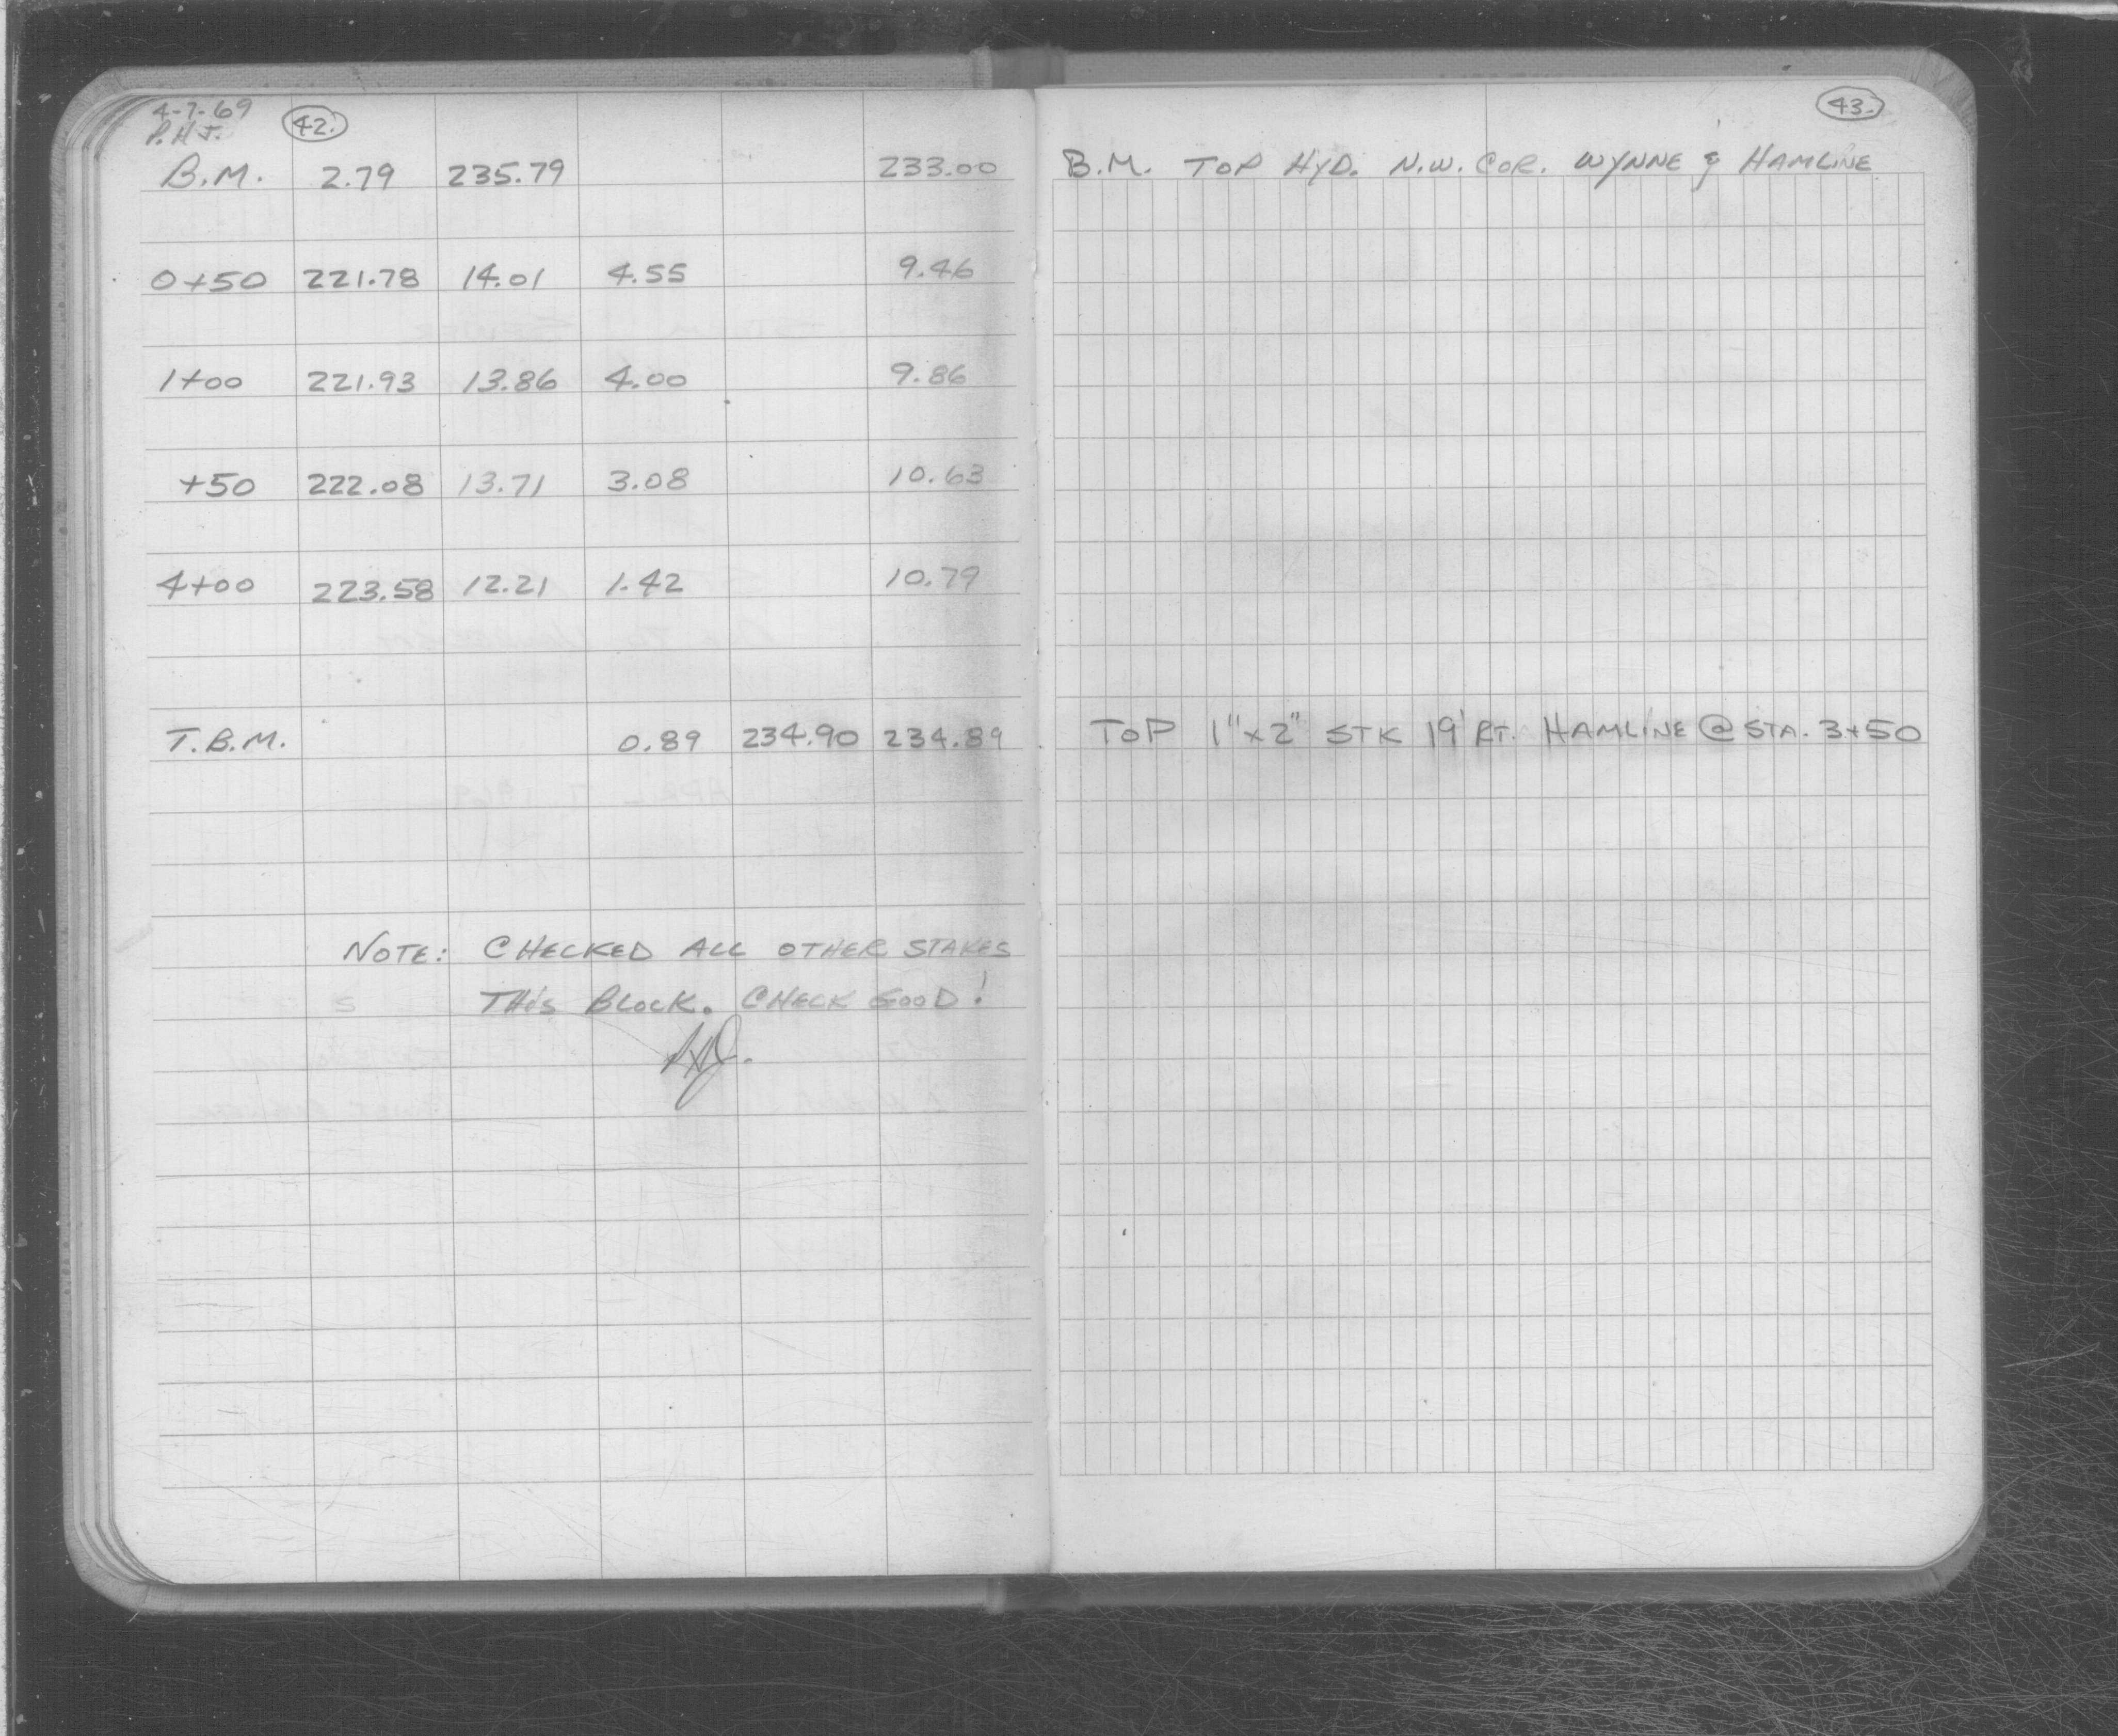 4-7-69
P.H.J.
42.
B.M. 2.79 235.79 233.00
0+50 221.78 14.01 4.55 9.46
1+00 221.93 13.86 4.00 9.86
+50 222.08 13.71 3.08 10.63
4+00 223.58 12.21 1.42 10.79
T.B.M. 0.89 234.90 234.89
NOTE: CHECKED ALL OTHER STAKES
THIS BLOCK. CHECK GOOD!
43.
B.M. TOP HYD. N.W. COR. WYNNE & HAMLINE
TOP 1"x2" STK 19' RT. HAMLINE @ STA. 3+50